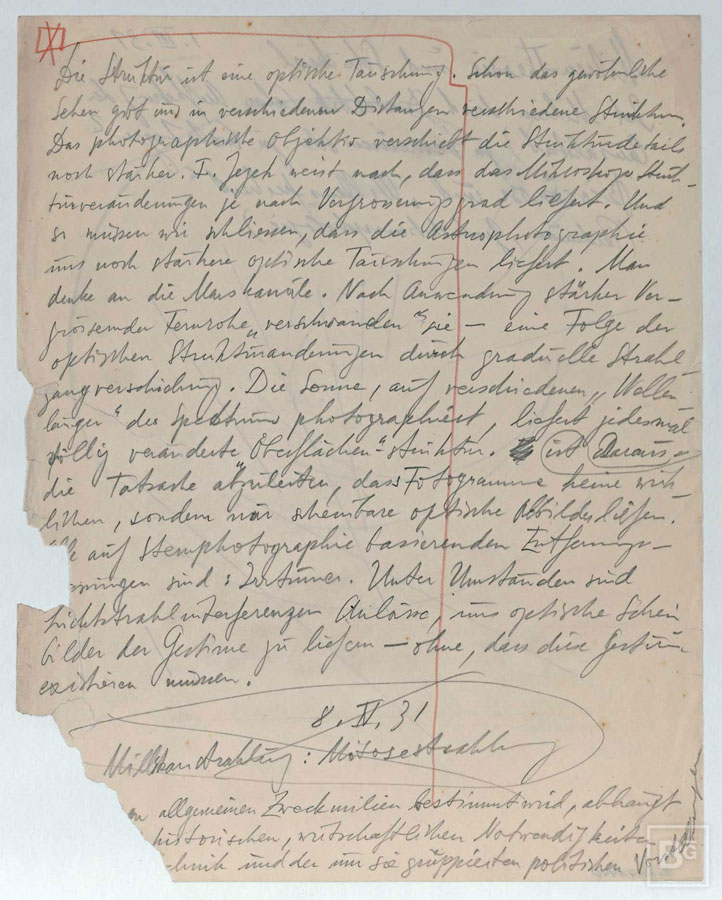 Die Struktur ist eine optische Täuschung. Schon das gewöhnliche
Sehen gibt uns in verschiedenen Distanzen verschiedene Strukturen.
Das photographische Objektiv verschiebt die Strukturdetails
noch stärker. F. Jezek weist nach, dass das Mikroskop Struk-
turveränderungen je nach Vergrösserungsgrad liefert. Und
so müssen wir schliessen, dass die Astrophotographie
uns noch stärkere optische Täuschungen liefert. Man
denke an die Marskanäle. Nach Anwendung stärker Ver-
grössender Fernrohre „verschwanden“ sie — eine Folge der
optischen Strukturänderungen durch graduelle Strahl-
gangverschiebung. Die Sonne, auf verschiedenen „Wellen
längen“ des Spektrums photographiert, liefert jedesmal
völlig veränderte Oberflächen-struktur. ist Daraus
die Tatsache abzuleiten, dass Fotogramme keine wirk
lichen, sondern nur scheinbare optische Abbilder liefern.
auf Sternphotographie bassierenden Entfernungs-
sungen sind: Irrtümer. Unter Umständen sind
Lichtstrahlinterferenzen Anlässe, uns optische Schein
bilder der Gestirne zu liefern — ohne, dass diese Gestirne
existieren müssen.
8. IV. 31
Millikanstrahlung: Mitosestrahlung
en allgemeinen Zweckmilieu bestimmt wird, abhängt
historischen, wirtschaftlichen Notwendigkeiten
chnik und der um sie gruppierten politischen Vorstellungen
BG